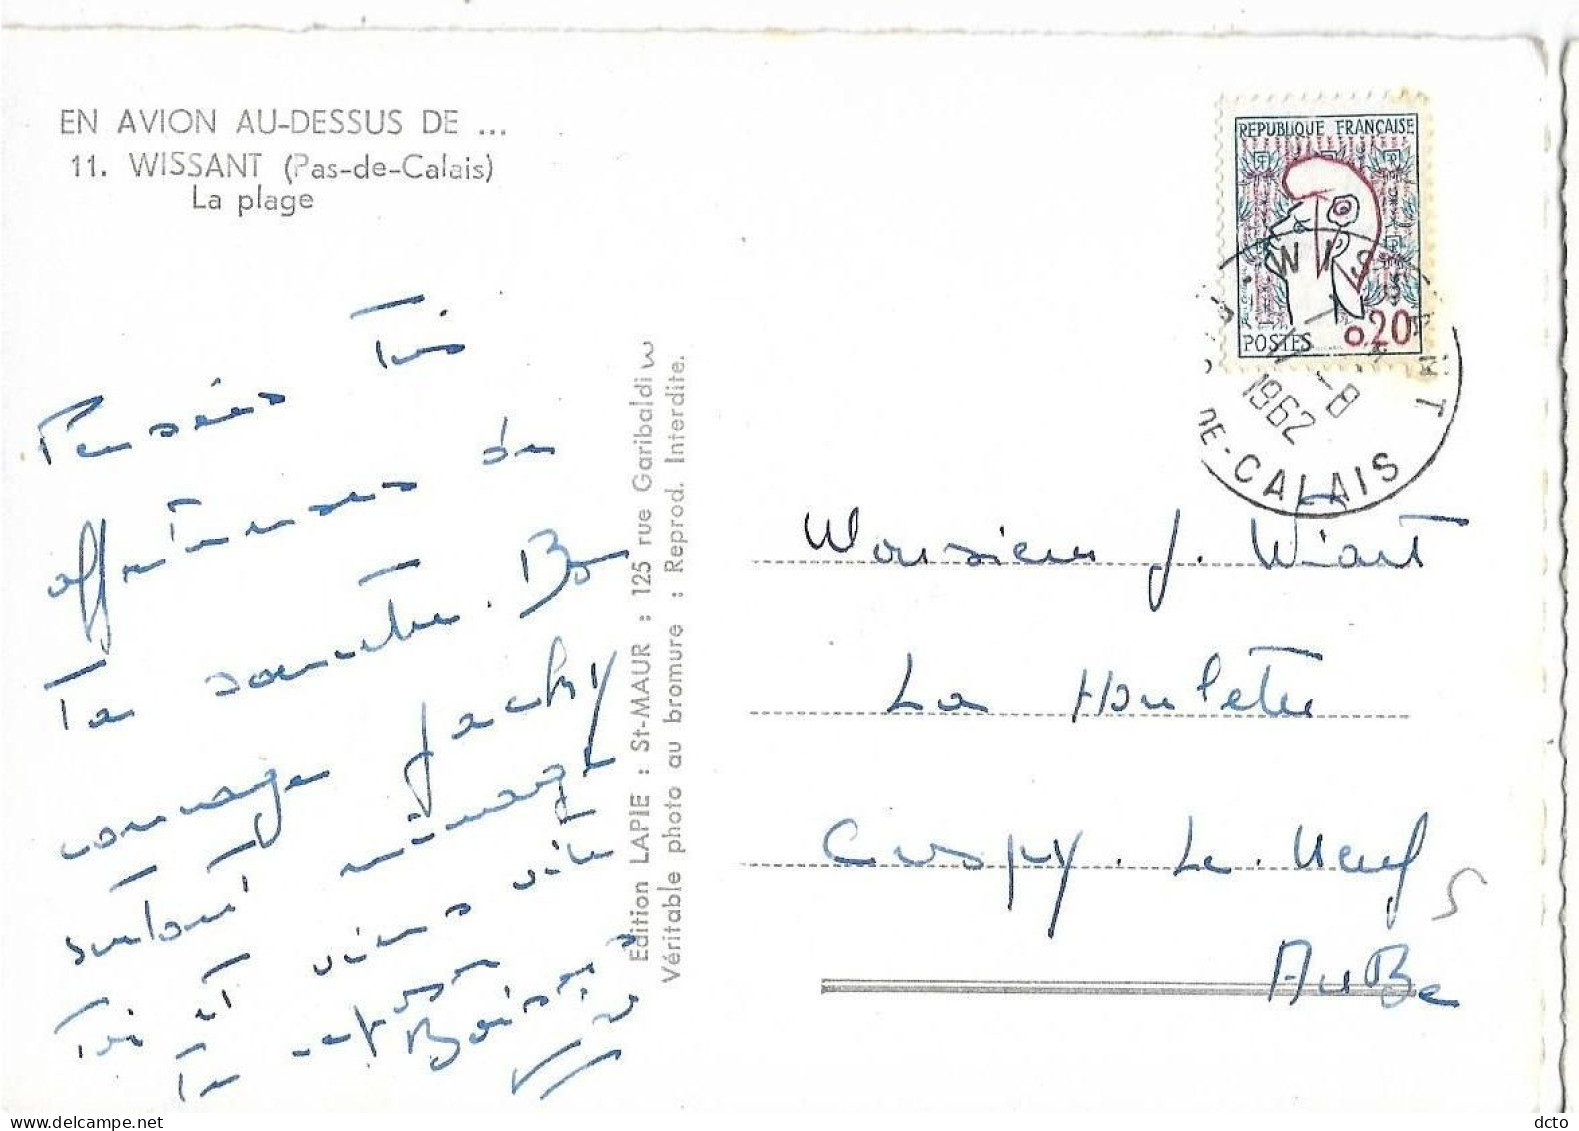 EN AVION AU-DESSUS DE ...
11. WISSANT (Pas-de-Calais)
La plage
REPUBLIQUE FRANÇAISE
0.20
POSTES
WISSANT
11-8
1962
DE-CALAIS
Pensées Très
affectueuses de
Ta
Bon
courage Jacky
surtout
Toi et viens vite
Te
Edition LAPIE : St-MAUR : 125 rue Garibaldi W
Véritable photo au bromure : Reprod. Interdite.
Monsieur J. Wiart
La Houlette
Crespy. Le. Neuf
AuBe
S
www.delcampe.net
dcto